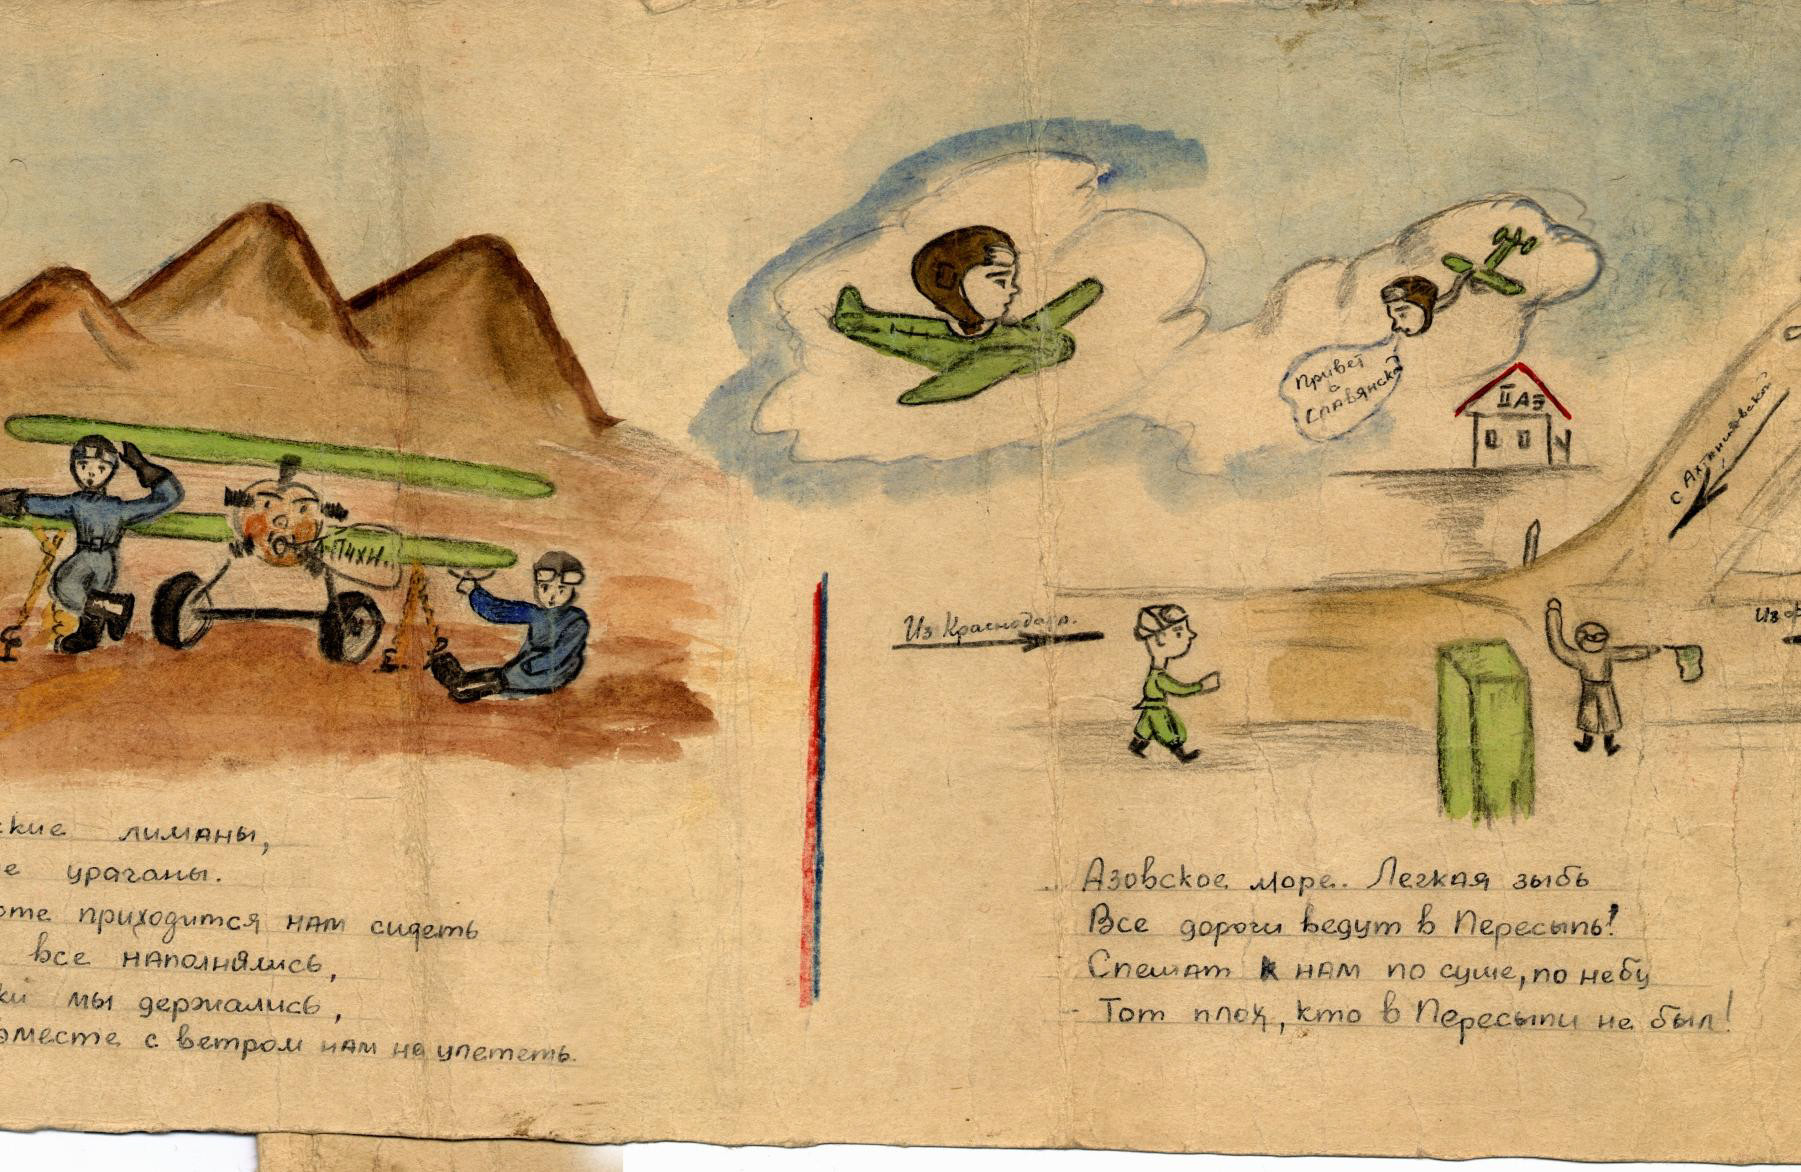 А-ПЧХИ..
Привет
с
Славянска
II АЭ
с Ахтанизовской
Из Краснодара.
Из
лиманы,
ураганы.
приходится нам сидеть
все наполнялись,
мы держались,
вместе с ветром нам не улететь.
Азовское море. Легкая зыбь
Все дороги ведут в Пересыпь!
Спешат к нам по суше, по небу
- Тот плох, кто в Пересыпи не был!